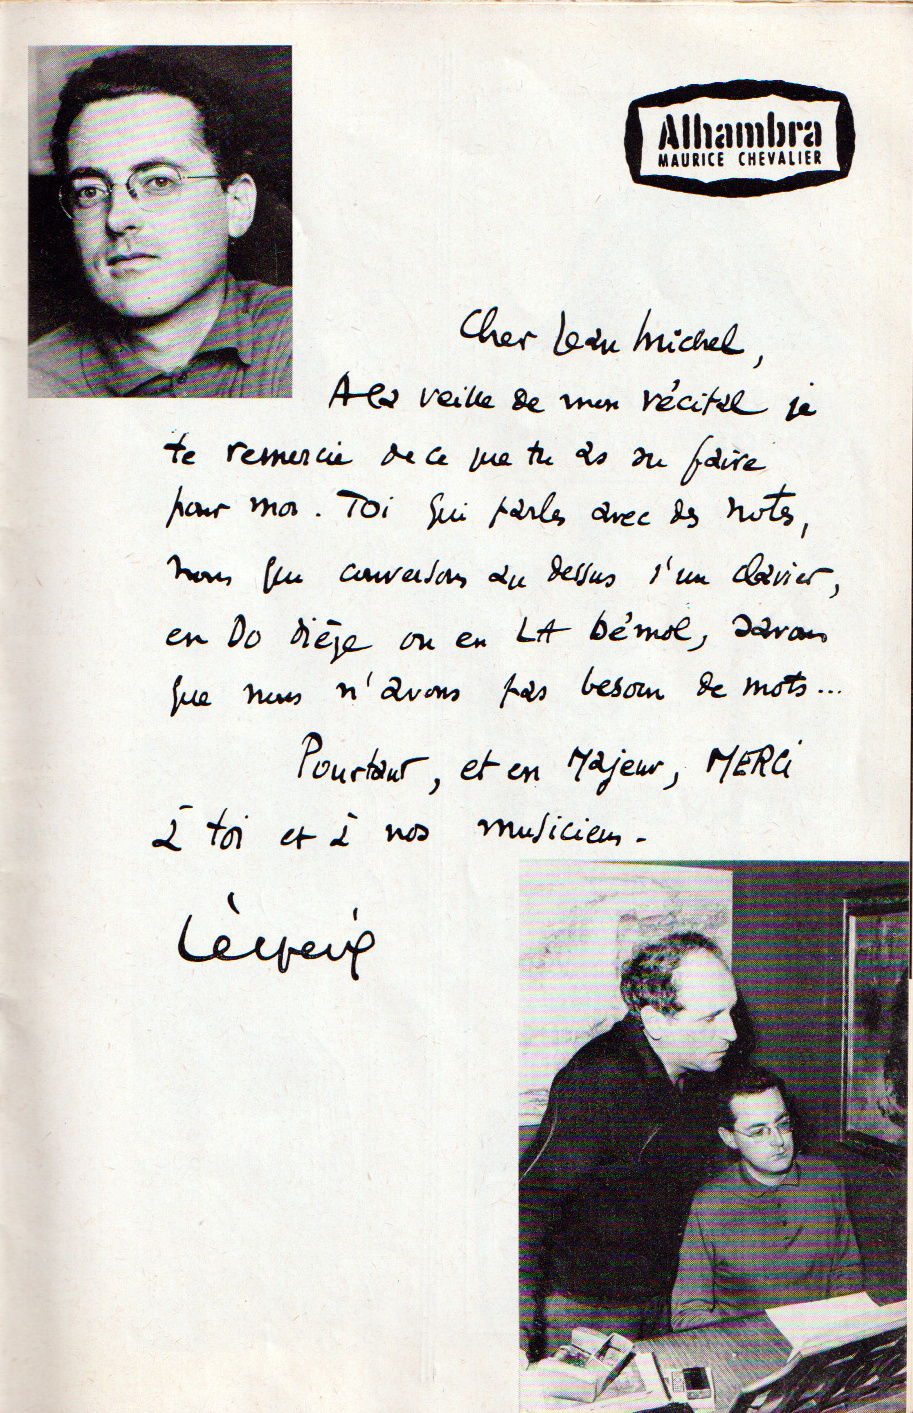 Alhambra
MAURICE CHEVALIER
Cher Jean Michel,
A la veille de mon récital je
te remercie de ce que tu as su faire
pour moi. Toi qui parles avec des notes,
nous qui conversons au dessus d'un clavier,
en Do dièze ou en LA bémol, savons
que nous n'avons pas besoin de mots...
Pourtant, et en Majeur, MERCI
à toi et à nos musiciens.